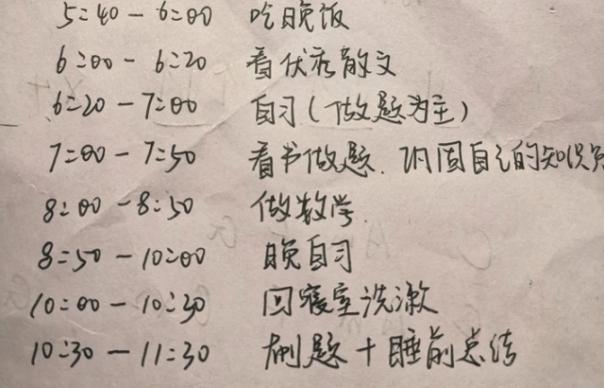 5:40 — 6:00 吃晚饭
6:00 — 6:20 看优秀散文
6:20 — 7:00 自习(做题为主)
7:00 — 7:50 看书做题. 巩固自己的知识
8:00 — 8:50 做数学
8:50 — 10:00 晚自习
10:00 — 10:30 回寝室洗漱
10:30 — 11:30 刷题+睡前总结